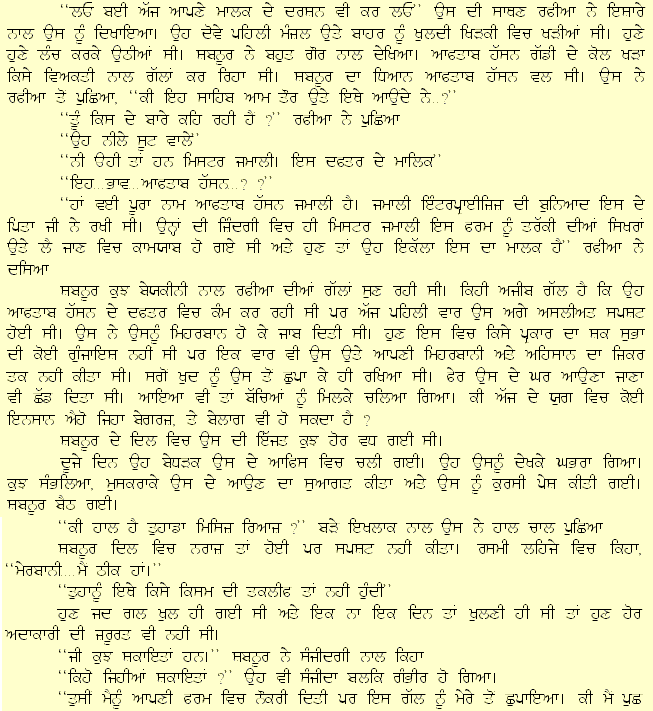 “ਲਓ ਬਈ ਅੱਜ ਆਪਣੇ ਮਾਲਕ ਦੇ ਦਰਸ਼ਨ ਵੀ ਕਰ ਲਓ” ਉਸ ਦੀ ਸਾਥਣ ਰਫੀਆ ਨੇ ਇਸ਼ਾਰੇ
ਨਾਲ ਉਸ ਨੂੰ ਦਿਖਾਇਆ। ਉਹ ਦੋਵੇ ਪਹਿਲੀ ਮੰਜ਼ਲ ਉਤੇ ਬਾਹਰ ਨੂੰ ਖੁਲਦੀ ਖਿੜਕੀ ਵਿਚ ਖੜੀਆਂ ਸੀ। ਹੁਣੇ
ਹੁਣੇ ਲੰਚ ਕਰਕੇ ਉਠੀਆਂ ਸੀ। ਸ਼ਬਨੂਰ ਨੇ ਬਹੁਤ ਗੌਰ ਨਾਲ ਦੇਖਿਆ। ਆਫਤਾਬ ਹੱਸਨ ਗੱਡੀ ਦੇ ਕੋਲ ਖੜਾ
ਕਿਸੇ ਵਿਅਕਤੀ ਨਾਲ ਗੱਲਾਂ ਕਰ ਰਿਹਾ ਸੀ। ਸ਼ਬਨੂਰ ਦਾ ਧਿਆਨ ਆਫਤਾਬ ਹੱਸਨ ਵਲ ਸੀ। ਉਸ ਨੇ
ਰਫੀਆ ਤੋਂ ਪੁਛਿਆ, “ਕੀ ਇਹ ਸਾਹਿਬ ਆਮ ਤੌਰ ਉਤੇ ਇਥੇ ਆਉਦੇ ਨੇ..?”
“ਤੂੰ ਕਿਸ ਦੇ ਬਾਰੇ ਕਹਿ ਰਹੀ ਹੈ ?” ਰਫੀਆ ਨੇ ਪੁਛਿਆ
“ਉਹ ਨੀਲੇ ਸੂਟ ਵਾਲੇ”
“ਨੀ ਓਹੀ ਤਾਂ ਹਨ ਮਿਸਟਰ ਜਮਾਲੀ। ਇਸ ਦਫਤਰ ਦੇ ਮਾਲਿਕ”
“ਇਹ...ਭਾਵ...ਆਫਤਾਬ ਹੱਸਨ...? ?”
“ਹਾਂ ਵਈ ਪੂਰਾ ਨਾਮ ਆਫਤਾਬ ਹੱਸਨ ਜਮਾਲੀ ਹੈ। ਜਮਾਲੀ ਇੰਟਰਪ੍ਰਾਈਜ਼ਿਜ਼ ਦੀ ਬੁਨਿਆਦ ਇਸ ਦੇ
ਪਿਤਾ ਜੀ ਨੇ ਰਖੀ ਸੀ। ਉਨ੍ਹਾਂ ਦੀ ਜ਼ਿੰਦਗੀ ਵਿਚ ਹੀ ਮਿਸਟਰ ਜਮਾਲੀ ਇਸ ਫਰਮ ਨੂੰ ਤਰੱਕੀ ਦੀਆਂ ਸਿਖਰਾਂ
ਉਤੇ ਲੈ ਜਾਣ ਵਿਚ ਕਾਮਯਾਬ ਹੋ ਗਏ ਸੀ ਅਤੇ ਹੁਣ ਤਾਂ ਉਹ ਇਕੱਲਾ ਇਸ ਦਾ ਮਾਲਕ ਹੈ” ਰਫੀਆ ਨੇ
ਦਸਿਆ
ਸ਼ਬਨੂਰ ਕੁਝ ਬੇਯਕੀਨੀ ਨਾਲ ਰਫੀਆ ਦੀਆਂ ਗੱਲਾਂ ਸੁਣ ਰਹੀ ਸੀ। ਕਿਹੀ ਅਜੀਬ ਗੱਲ ਹੈ ਕਿ ਉਹ
ਆਫਤਾਬ ਹੱਸਨ ਦੇ ਦਫਤਰ ਵਿਚ ਕੰਮ ਕਰ ਰਹੀ ਸੀ ਪਰ ਅੱਜ ਪਹਿਲੀ ਵਾਰ ਉਸ ਅਗੇ ਅਸਲੀਅਤ ਸਪਸ਼ਟ
ਹੋਈ ਸੀ। ਉਸ ਨੇ ਉਸਨੂੰ ਮਿਹਰਬਾਨ ਹੋ ਕੇ ਜਾਬ ਦਿਤੀ ਸੀ। ਹੁਣ ਇਸ ਵਿਚ ਕਿਸੇ ਪ੍ਰਕਾਰ ਦਾ ਸ਼ਕ ਸੁਭਾ
ਦੀ ਕੋਈ ਗੁੰਜਾਇਸ਼ ਨਹੀਂ ਸੀ ਪਰ ਇਕ ਵਾਰ ਵੀ ਉਸ ਉਤੇ ਆਪਣੀ ਮਿਹਰਬਾਨੀ ਅਤੇ ਅਹਿਸਾਨ ਦਾ ਜ਼ਿਕਰ
ਤਕ ਨਹੀਂ ਕੀਤਾ ਸੀ। ਸਗੋ ਖੁਦ ਨੂੰ ਉਸ ਤੋਂ ਛੁਪਾ ਕੇ ਹੀ ਰਖਿਆ ਸੀ। ਫੇਰ ਉਸ ਦੇ ਘਰ ਆਉਣਾ ਜਾਣਾ
ਵੀ ਛੱਡ ਦਿਤਾ ਸੀ। ਆਇਆ ਵੀ ਤਾਂ ਬੱਚਿਆਂ ਨੂੰ ਮਿਲਕੇ ਚਲਿਆ ਗਿਆ। ਕੀ ਅੱਜ ਦੇ ਯੁਗ ਵਿਚ ਕੋਈ
ਇਨਸਾਨ ਐਹੋ ਜਿਹਾ ਬੇਗਰਜ਼, ਤੇ ਬੇਲਾਗ ਵੀ ਹੋ ਸਕਦਾ ਹੈ ?
ਸ਼ਬਨੂਰ ਦੇ ਦਿਲ ਵਿਚ ਉਸ ਦੀ ਇੱਜ਼ਤ ਕੁਝ ਹੋਰ ਵਧ ਗਈ ਸੀ।
ਦੂਜੇ ਦਿਨ ਉਹ ਬੇਧੜਕ ਉਸ ਦੇ ਆਫਿਸ ਵਿਚ ਚਲੀ ਗਈ। ਉਹ ਉਸਨੂੰ ਦੇਖਕੇ ਘਬਰਾ ਗਿਆ।
ਕੁਝ ਸੰਭਲਿਆ, ਮੁਸਕਰਾਕੇ ਉਸ ਦੇ ਆਉਣ ਦਾ ਸੁਆਗਤ ਕੀਤਾ ਅਤੇ ਉਸ ਨੂੰ ਕੁਰਸੀ ਪੇਸ਼ ਕੀਤੀ ਗਈ।
ਸ਼ਬਨੂਰ ਬੈਠ ਗਈ।
“ਕੀ ਹਾਲ ਹੈ ਤੁਹਾਡਾ ਮਿਸਿਜ਼ ਰਿਆਜ਼ ?” ਬੜੇ ਇਖਲਾਕ ਨਾਲ ਉਸ ਨੇ ਹਾਲ ਚਾਲ ਪੁਛਿਆ
ਸ਼ਬਨੂਰ ਦਿਲ ਵਿਚ ਨਰਾਜ਼ ਤਾਂ ਹੋਈ ਪਰ ਸਪਸ਼ਟ ਨਹੀਂ ਕੀਤਾ। ਰਸਮੀ ਲਹਿਜੇ ਵਿਚ ਕਿਹਾ,
“ਮੇਰਬਾਨੀ...ਮੈਂ ਠੀਕ ਹਾਂ।”
“ਤੁਹਾਨੂੰ ਇਥੇ ਕਿਸੇ ਕਿਸਮ ਦੀ ਤਕਲੀਫ ਤਾਂ ਨਹੀਂ ਹੁੰਦੀ”
ਹੁਣ ਜਦ ਗਲ ਖੁਲ ਹੀ ਗਈ ਸੀ ਅਤੇ ਇਕ ਨਾ ਇਕ ਦਿਨ ਤਾਂ ਖੁਲਣੀ ਹੀ ਸੀ ਤਾਂ ਹੁਣ ਹੋਰ
ਅਦਾਕਾਰੀ ਦੀ ਜ਼ਰੂਰਤ ਵੀ ਨਹੀਂ ਸੀ।
“ਜੀ ਕੁਝ ਸ਼ਕਾਇਤਾਂ ਹਨ।” ਸ਼ਬਨੂਰ ਨੇ ਸੰਜੀਦਗੀ ਨਾਲ ਕਿਹਾ
“ਕਿਹੋ ਜਿਹੀਆਂ ਸ਼ਕਾਇਤਾਂ ?” ਉਹ ਵੀ ਸੰਜੀਦਾ ਬਲਕਿ ਗੰਭੀਰ ਹੋ ਗਿਆ।
“ਤੁਸੀ ਮੈਨੂੰ ਆਪਣੀ ਫਰਮ ਵਿਚ ਨੌਕਰੀ ਦਿਤੀ ਪਰ ਇਸ ਗੱਲ ਨੂੰ ਮੇਰੇ ਤੋਂ ਛੁਪਾਇਆ। ਕੀ ਮੈਂ ਪੁਛ